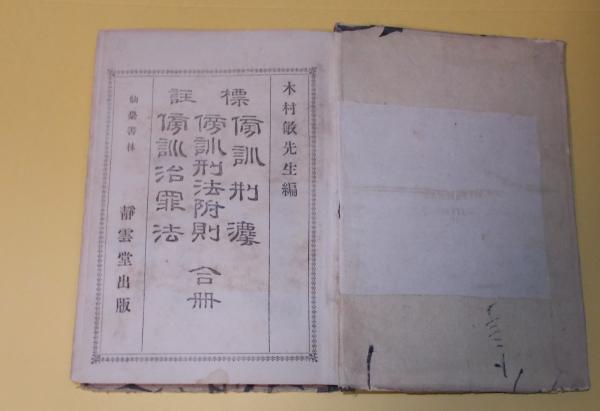 木村敏先生編
標 傍訓刑灋
傍訓刑法附則 合册
註 傍訓治罪法
仙臺書林
靜雲堂出版